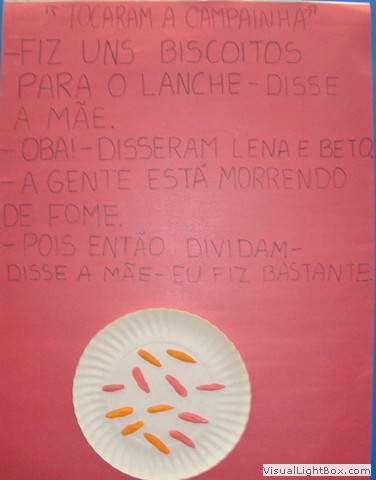 "TOCARAM A CAMPAINHA"
-FIZ UNS BISCOITOS
PARA O LANCHE-DISSE
A MÃE.
-OBA!-DISSERAM LENA E BETO.
-A GENTE ESTÁ MORRENDO
DE FOME.
-POIS ENTÃO DIVIDAM-
DISSE A MÃE-EU FIZ BASTANTE.
VisualLightBox.com